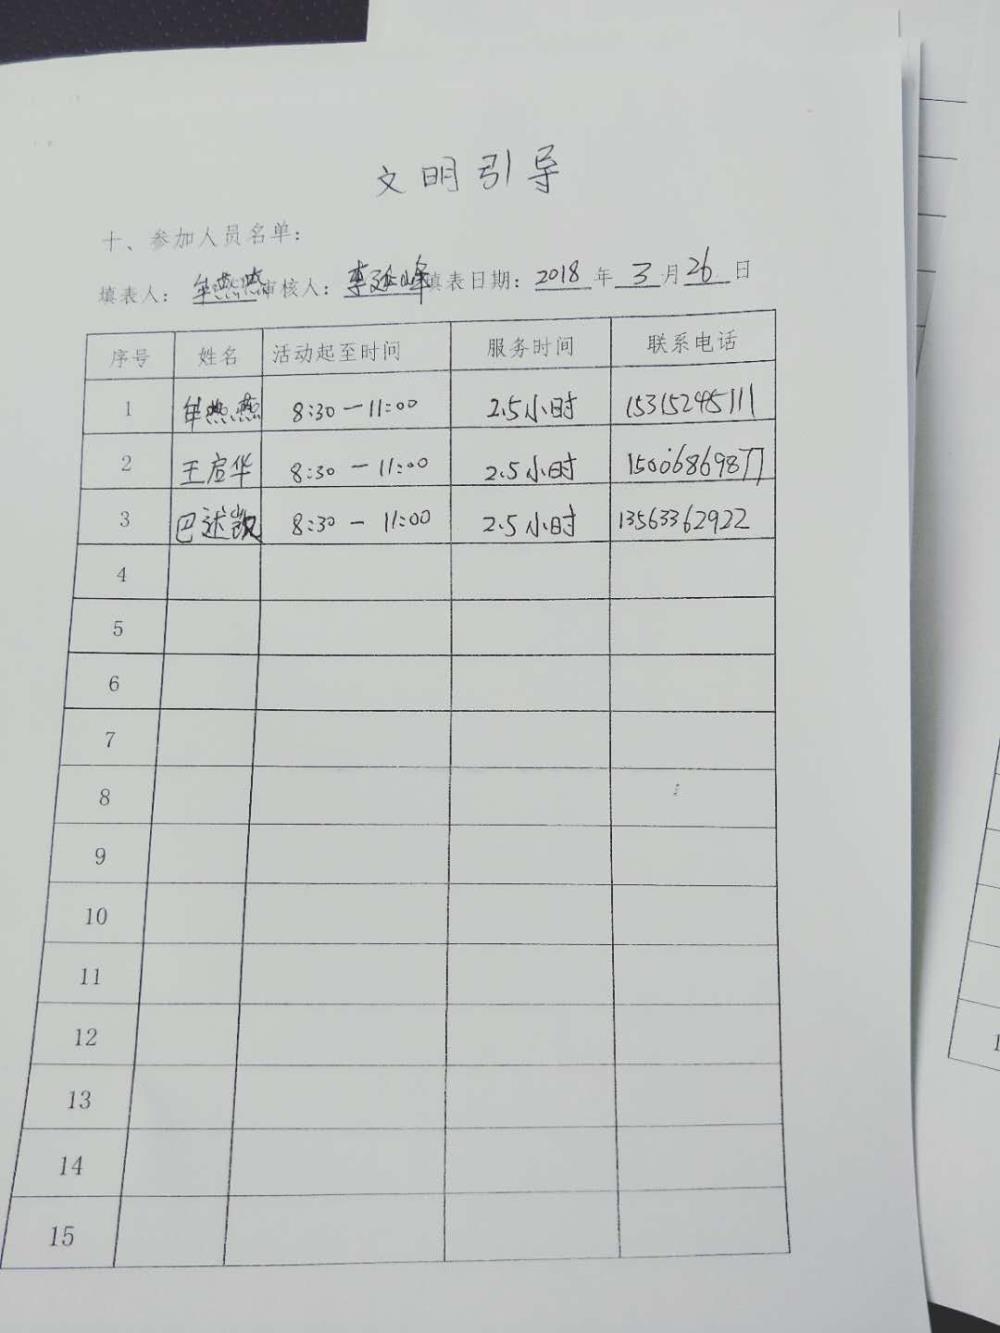 文明引导
十、参加人员名单：
填表人：牟燕燕 审核人：李延峰 填表日期：2018年3月26日
序号 姓名 活动起至时间 服务时间 联系电话
1 牟燕燕 8:30—11:00 2.5小时 15315245111
2 王启华 8:30—11:00 2.5小时 15006869877
3 巴述凯 8:30—11:00 2.5小时 13563362922
4
5
6
7
8
9
10
11
12
13
14
15